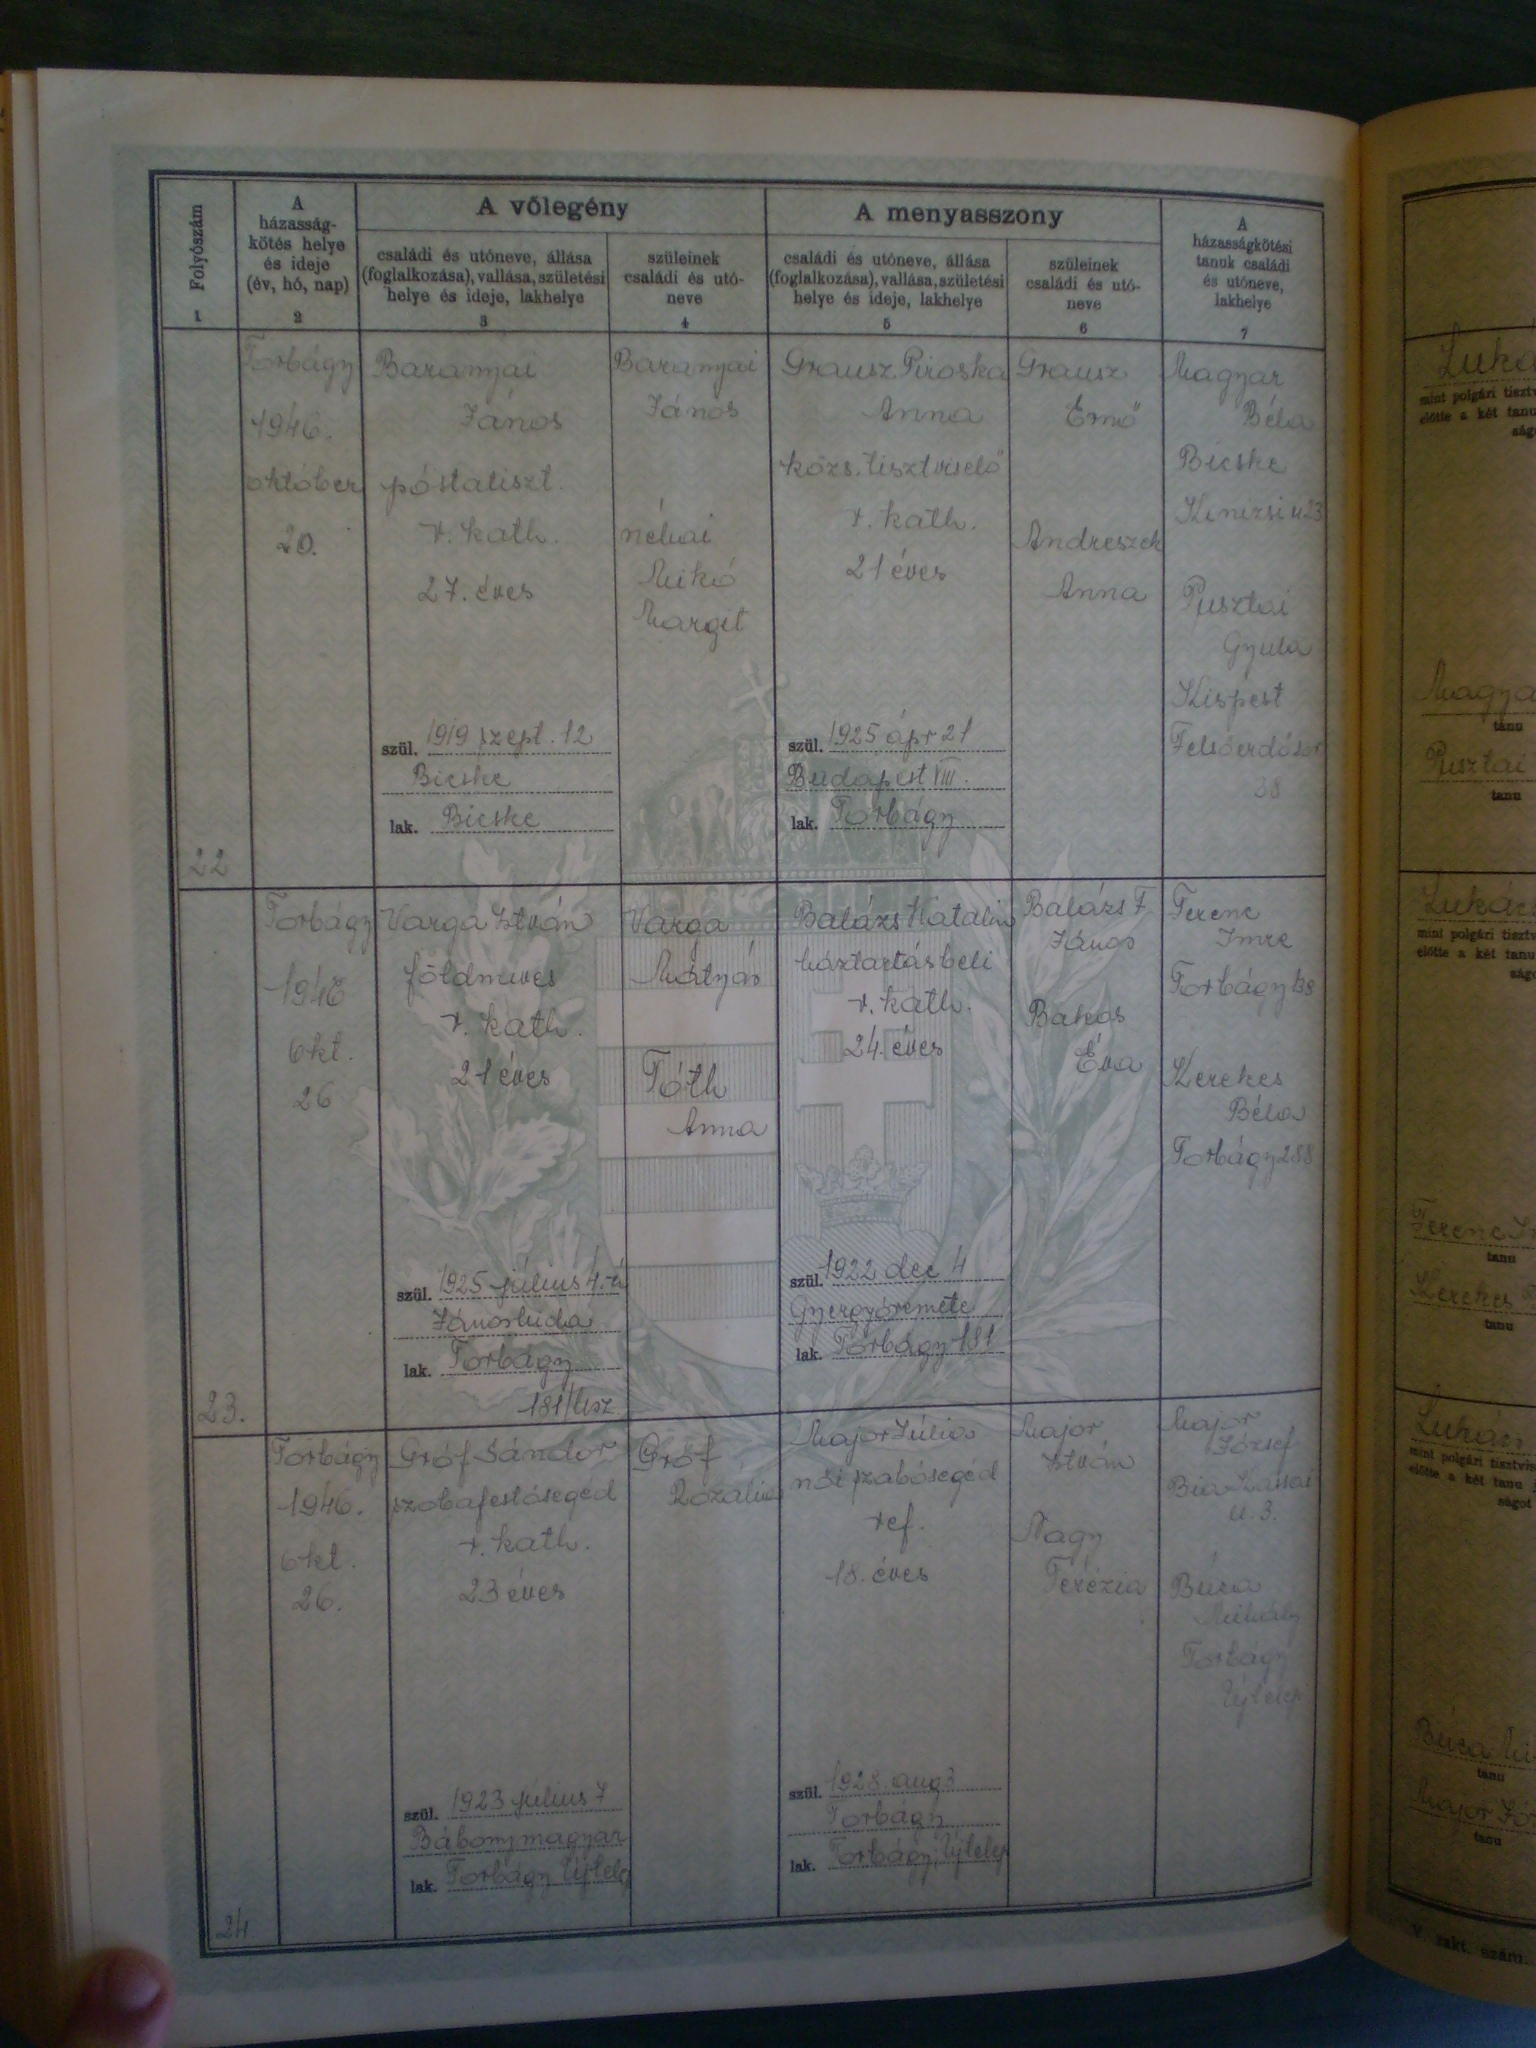 Folyószám
1
A
házasság-
kötés helye
és ideje
(év, hó, nap)
2
A vőlegény
családi és utóneve, állása
(foglalkozása), vallása, születési
helye és ideje, lakhelye
3
szüleinek
családi és utó-
neve
4
A menyasszony
családi és utóneve, állása
(foglalkozása), vallása, születési
helye és ideje, lakhelye
5
szüleinek
családi és utó-
neve
6
A
házasságkötési
tanuk családi
és utóneve,
lakhelye
7
22
Torbágy
1946.
október
20.
Baranyai
János
póstatiszt.
r. kath.
27. éves
szül. 1919 szept. 12
Bicske
lak. Bicske
Baranyai
János
néhai
Mikó
Margit
Grausz Piroska
Anna
közs. tisztviselő
r. kath.
21 éves
szül. 1925 ápr 21
Budapest VIII.
lak. Torbágy
Grausz
Ernő
Andreszek
Anna
Magyar
Béla
Bicske
Kinizsi u 23
Pusztai
Gyula
Kispest
Felsőerdősor
38
23.
Torbágy
1946
okt.
26
Varga István
földmüves
r. kath.
21 éves
szül. 1925 július 4.-én
Jánoshida
lak. Torbágy
181/
Varga
Mátyás
Tóth
Anna
Balázs Katalin
háztartásbeli
r. kath.
24. éves
szül. 1922 dec 4
Gyergyóremete
lak. Torbágy 181
Balázs F
János
Bakos
Éva
Ferenc
Imre
Torbágy 138
Kerekes
Béla
Torbágy 288
24
Torbágy
1946.
okt.
26.
Gróf Sándor
szobafestősegéd
r. kath.
23 éves
szül. 1923 július 7
Bábonymagyar
lak. Torbágy Ujtelep
Gróf
Rozália
Major Júlia
női szabósegéd
ref.
18. éves
szül. 1928. aug 3
Torbágy
lak. Torbágy, Ujtelep
Major
István
Nagy
Terézia
Major
József
Bia Kassai
u. 3.
Búza
Mihály
Torbágy
Ujtelep
mint polgári tisztv
előtte a két tanu
Magya
tanu
Pusztai
tanu
Lukács
mint polgári tisztv
előtte a két tanu
ságo
Ferenc I
tanu
Kerekes
tanu
mint polgári tisztvis
előtte a két tanu
ságot
tanu
Major Jó
tanu
V. rakt. szám.